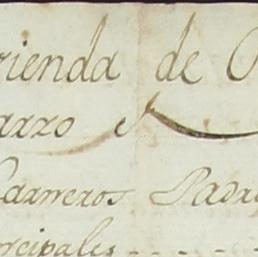 rienda de
arzo
Carreros Padr
ncipales - - - -